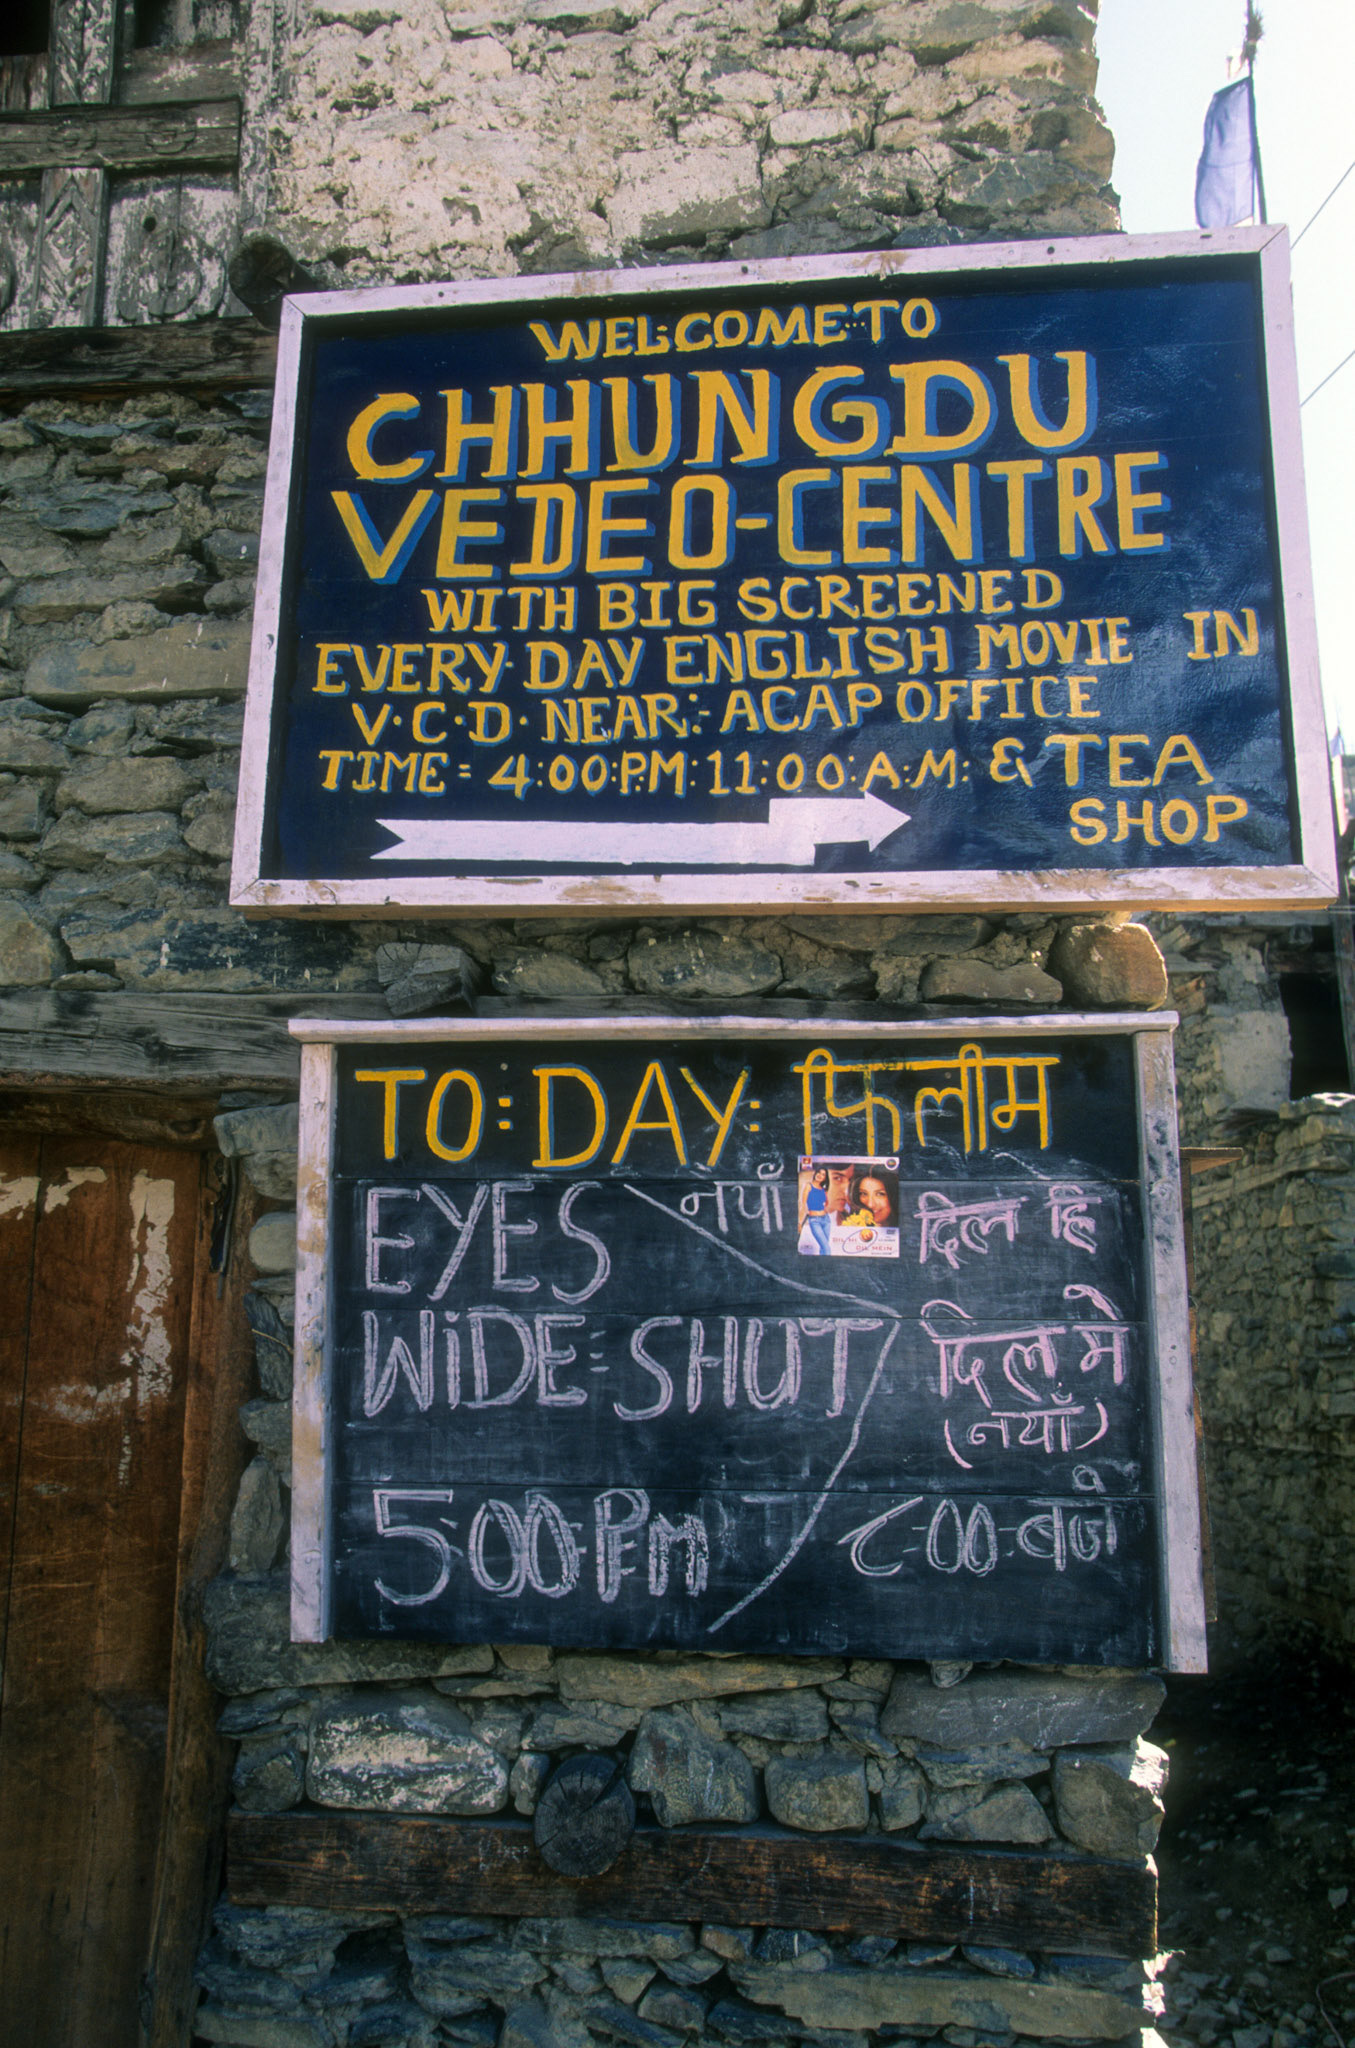 WELCOME TO
CHHUNGDU
VEDEO-CENTRE
WITH BIG SCREENED
EVERY DAY ENGLISH MOVIE IN
V.C.D. NEAR:- ACAP OFFICE
TIME = 4:00:P.M: 11:00:A:M: & TEA
SHOP
TO:DAY: फिलीम
EYES
WiDE=SHUT
5:00=P=m
नयाँ
DIL HI
DIL MEIN
दिल हि
दिल मे
(नयाँ)
८-००-बजे